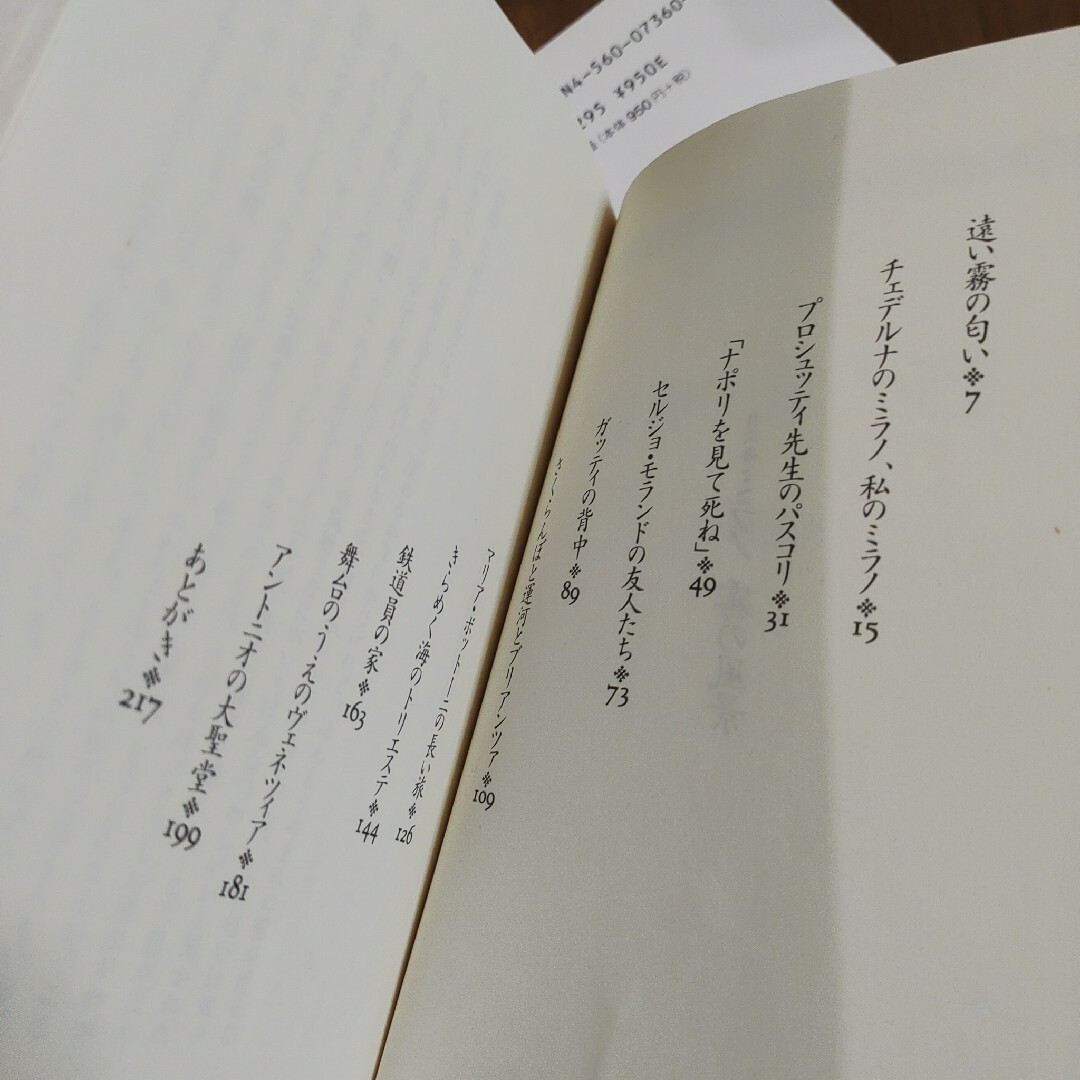 N4-560-07360-
295 ¥950E
(本体950円+税)
遠い霧の匂い※7
チェデルナのミラノ、私のミラノ※15
プロシュッティ先生のパスコリ※31
「ナポリを見て死ね」※49
セルジョ・モランドの友人たち※73
ガッティの背中※89
さくらんぼと運河とブリアンツァ※109
マリア・ボットーニの長い旅※126
きらめく海のトリエステ※144
鉄道員の家※163
舞台のうえのヴェネツィア※181
アントニオの大聖堂※199
あとがき※217